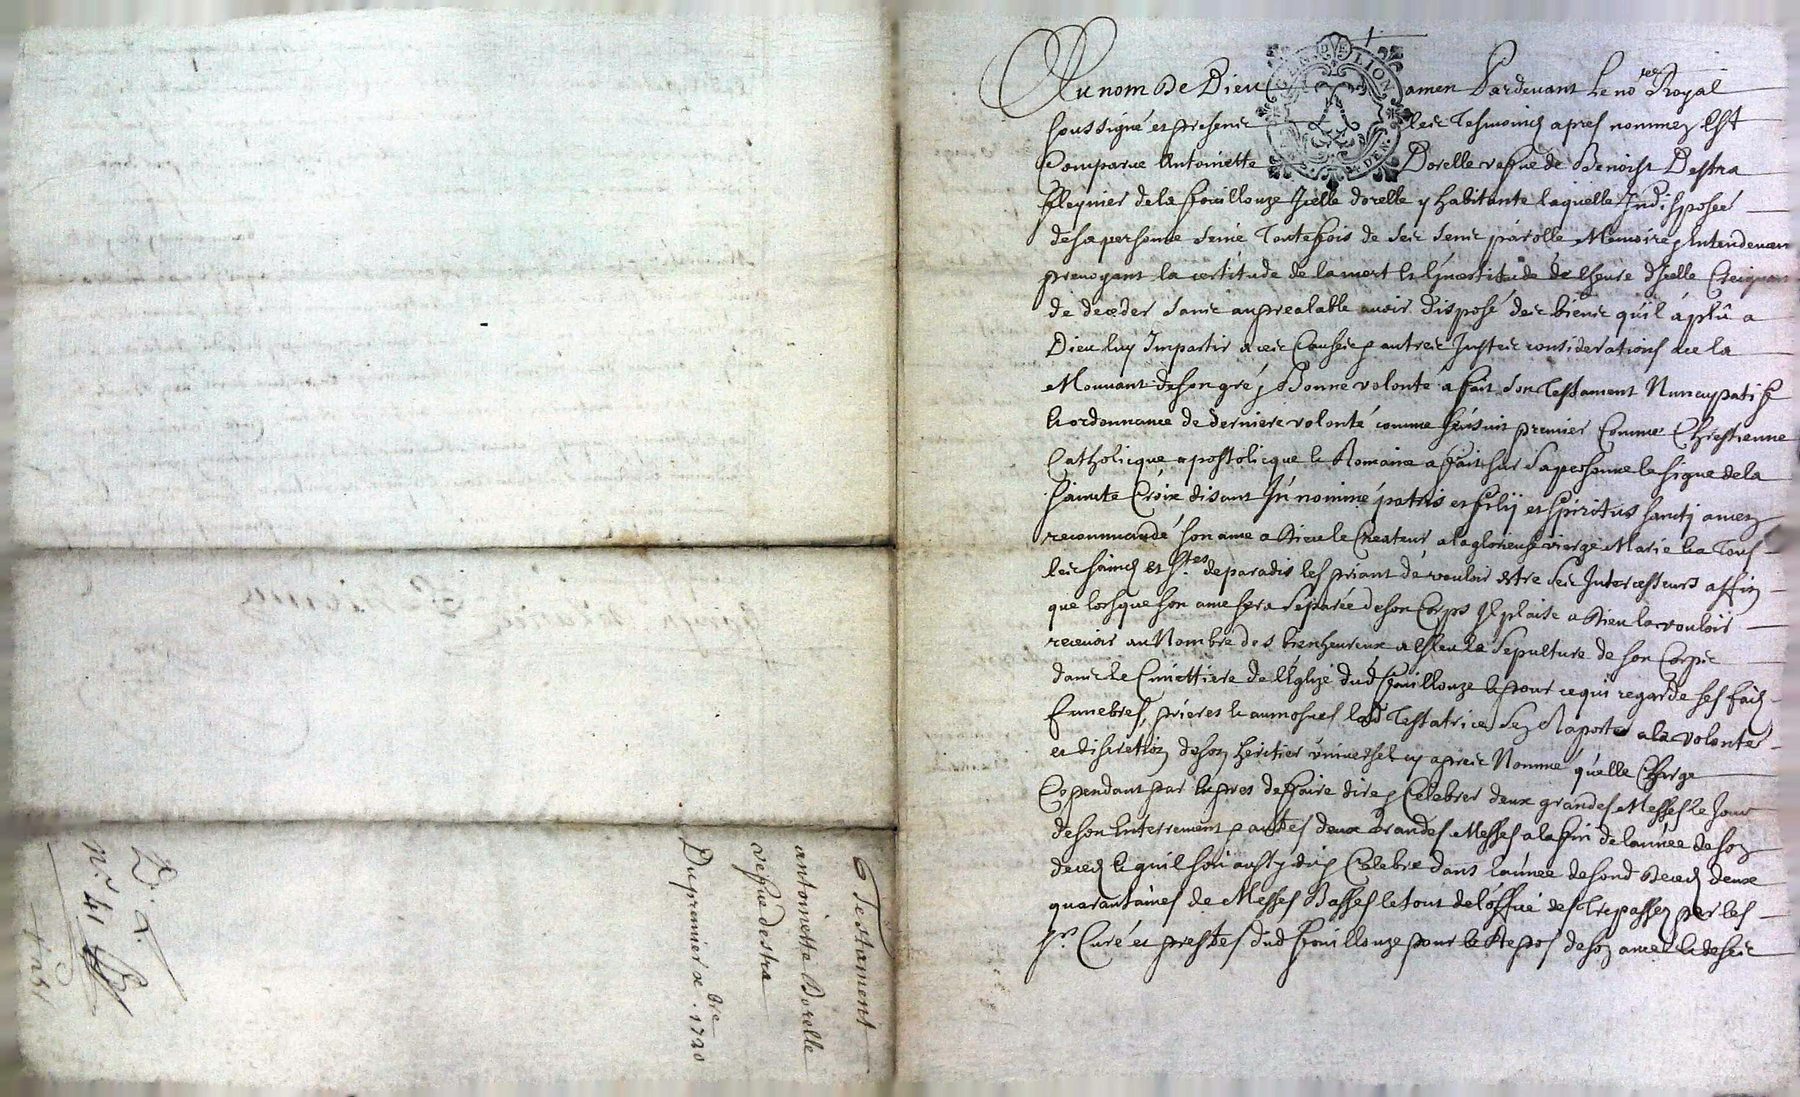 Au nom de Dieu amen Pardevant le no.re Royal
soussigné et presents les Tesmoins apres nommez Est
Comparue Antoinette Dorelle vefve de Benoist Destra
de la Fouillouze Icelle dorelle y habitante laquelle Indisposée
de sa personne saine Toutefois de ses sens parolle Memoire & Entendement
prevoyant la certitude de la mort et l'Incertitude de l'heure d'Icelle Craignant
de deceder sans au prealable avoir disposé des biens qu'il a plû a
Dieu luy Impartir a ces Causes & autres Justes considerations a ce la
Mouvant de son gré & Bonne volonté a fait son Testament Nuncupatif
et ordonnance de derniere volonté comme s'ensuit premier Comme Chrestienne
Catholicque apostolicque et Romaine a fait sur sa personne le signe de la
saincte Croix disant In nomine patris et filij et spiritus sancti amen
recommandé son ame a Dieu le Createur a la glorieuse vierge Marie et a Tous
les saincts et S.tes de paradis les priant de vouloir estre ses Intercesseurs affin
que lorsque son ame sera separée de son Corps Il plaise a Dieu la vouloir
recevoir au Nombre des bienheureux a Esleu la sepulture de son Corps
dans le Cimettiere de l'Eglize dud Fouillouze et pour ce qui regarde ses fais
funebres, prieres et aumosnes lad Testatrice s'en Raporte a la volonté
et discretion de son heritier universel cy apres Nommé qu'elle Charge
Cependant par Expres de faire dire & Celebrer deux grandes Messes le Jour
de son Enterrement & autres deux Grandes Messes a la fin de l'année de son
deces et qu'il soit aussy dit & Celebré dans l'année de sond Deces deux
quarantaines de Messes Basses le tout de l'office des Trepassez par les
s.rs Curé et prestres dud Fouillouze pour le Repos de son ame et de ses
GEN DVE LION
6 Testament
antoinette Dorelle
vefve destra
Du premier x.bre 1720
N.º 41